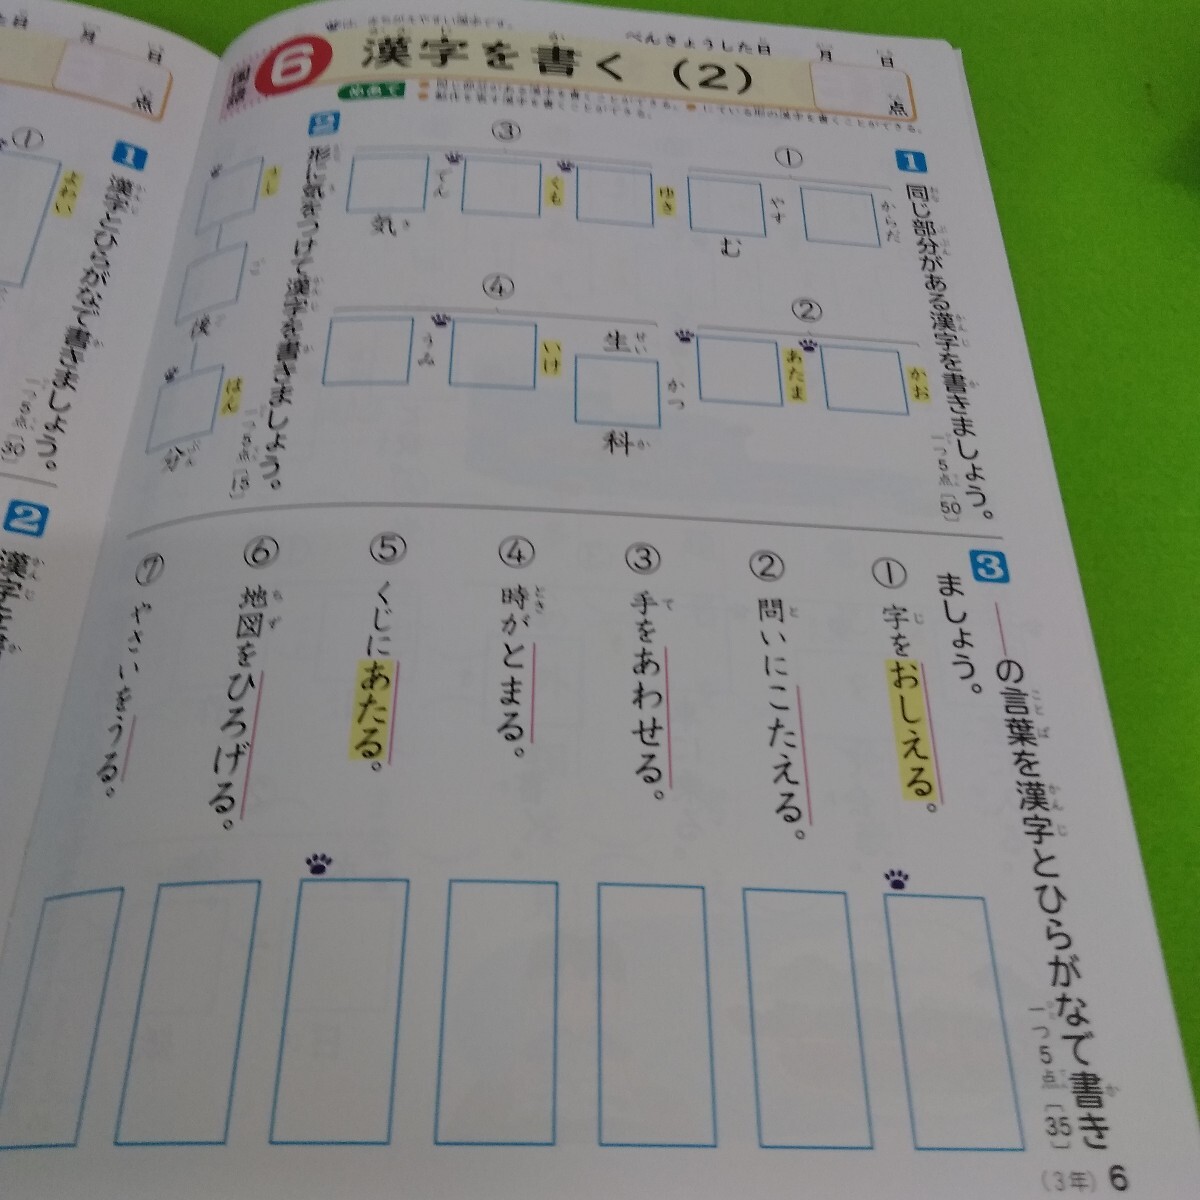 べんきょうした日 月 日
点
国語 6 漢字を書く（2）
めあて
1 同じ部分がある漢字を書きましょう。
一つ5点〔50〕
①
からだ
やすむ
②
かお
あたま
③
ゆき
くも
でん気
④
生かつ科
いけ
うみ
2 形に気をつけて漢字を書きましょう。
一つ5点〔15〕
ばん
分
3 ――の言葉を漢字とひらがなで書きましょう。
一つ5点〔35〕
① 字をおしえる。
② 問いにこたえる。
③ 手をあわせる。
④ 時がとまる。
⑤ くじにあたる。
⑥ 地図をひろげる。
⑦ やさいをうる。
（3年） 6
月 日
点
1 漢字とひらがなで書きましょう。
一つ5点〔30〕
①
よわい
2